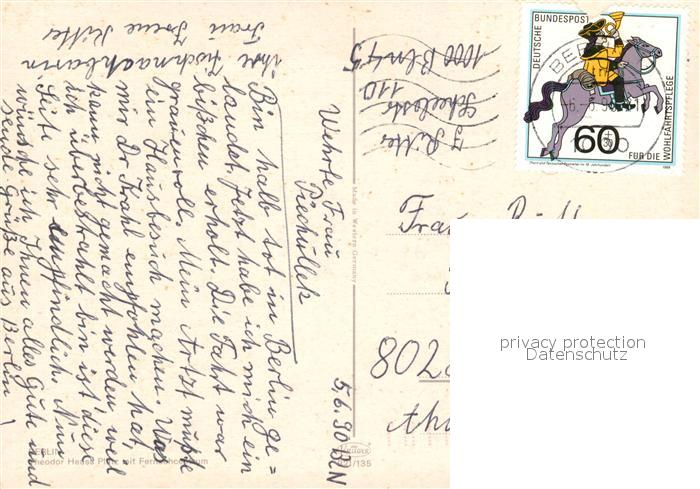 5.6.90 BLN
Wehrte Frau
Piehullek
Bin halb tot in Berlin ge=
landet. Jetzt habe ich mich ein
bißchen erholt. Die Fahrt war
grauenvoll. Mein Artzt mußte
ein Hausbesuch machen. Was
mir Dr Krahl empfohlen hat,
kann nicht gemacht werden, weil
ich überbestrahlt bin ist diese
Seite sehr empfindlich. Nun
wünsche ich Ihnen alles Gute und
sende Grüße aus Berlin!
Ihre Tischnachbarin
Frau Irene Ritter
I Ritter
Scheelestr
110
1000 Bln 45
DEUTSCHE BUNDESPOST
60
+30
FÜR DIE WOHLFAHRTSPFLEGE
BER
Frau
802
privacy protection
Datenschutz
Made in Western Germany
BERLIN
Theodor Heuss Platz mit Fernsehcentrum
/135